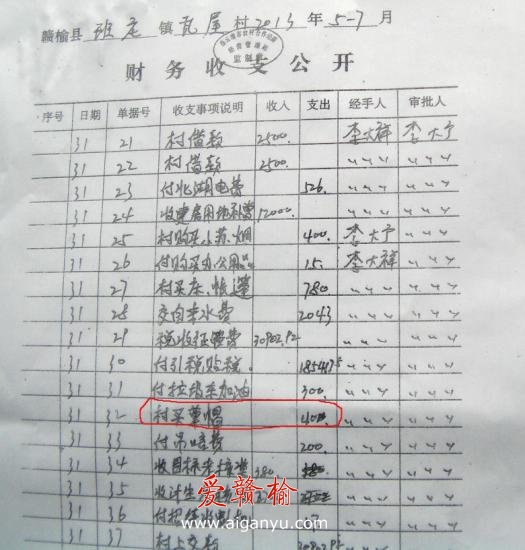 赣榆县 班庄 镇 瓦屋 村 2013 年 5-7 月
经营管理站
监制
财务收支公开
序号 日期 单据号 收支事项说明 收入 支出 经手人 审批人
31 21 村借款 2500. 李大祥 李大宁
31 22 村借款 2500. 〃 〃
31 23 付北湖电费 526. 〃 〃
31 24 12000. 〃 〃
31 25 村购买小苏烟 400. 李大宁 〃
31 26 付购买办公用品 15. 李大祥 〃
31 27 村买床、帐篷 780 〃 〃
31 28 交自来水费 2043 〃 〃
31 29 税收征管费 30902.92 〃 〃
31 30 付引税贴税. 〃 〃
31 31 加油 300. 〃 〃
31 32 村买草帽 〃 〃
31 33 付吊唁费 200. 〃 〃
31 34 380 〃 〃
31 35 收计生 〃 〃
31 36 〃 〃
31 37 村上交税 30902.92 〃 〃
爱赣榆
www.aiganyu.com